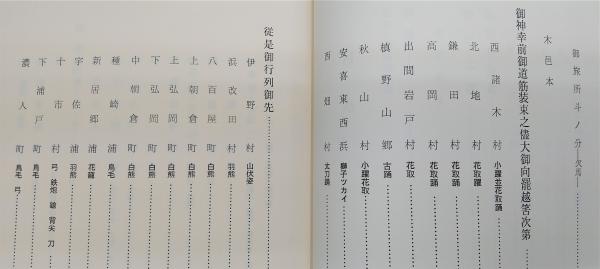 御旅所斗ノ分―欠馬―
木邑本
御神幸前御道筋装束之儘大御向罷越筈次第
西諸木村 小躍並花取踊
北地村 花取躍
鎌田村 花取踊
高岡村 花取踊
出間岩戸村 花取
槙野山郷 古踊
秋山村 小躍花取
安喜東西浜 獅子ツカイ
西畑村 太刀踊
従是御行列御先
伊野村 山伏姿
浜改田村 羽熊
八百屋町 白熊
上朝倉町 白熊
上弘岡町 白熊
下弘岡町 白熊
中朝倉町 白熊
種崎浦 鳥毛
新居郷浦 花籠
宇佐浦 羽熊
十市村 弓 鉄炮 鎗 背尖 刀
下浦戸町 鳥毛
濃人町 鳥毛 弓